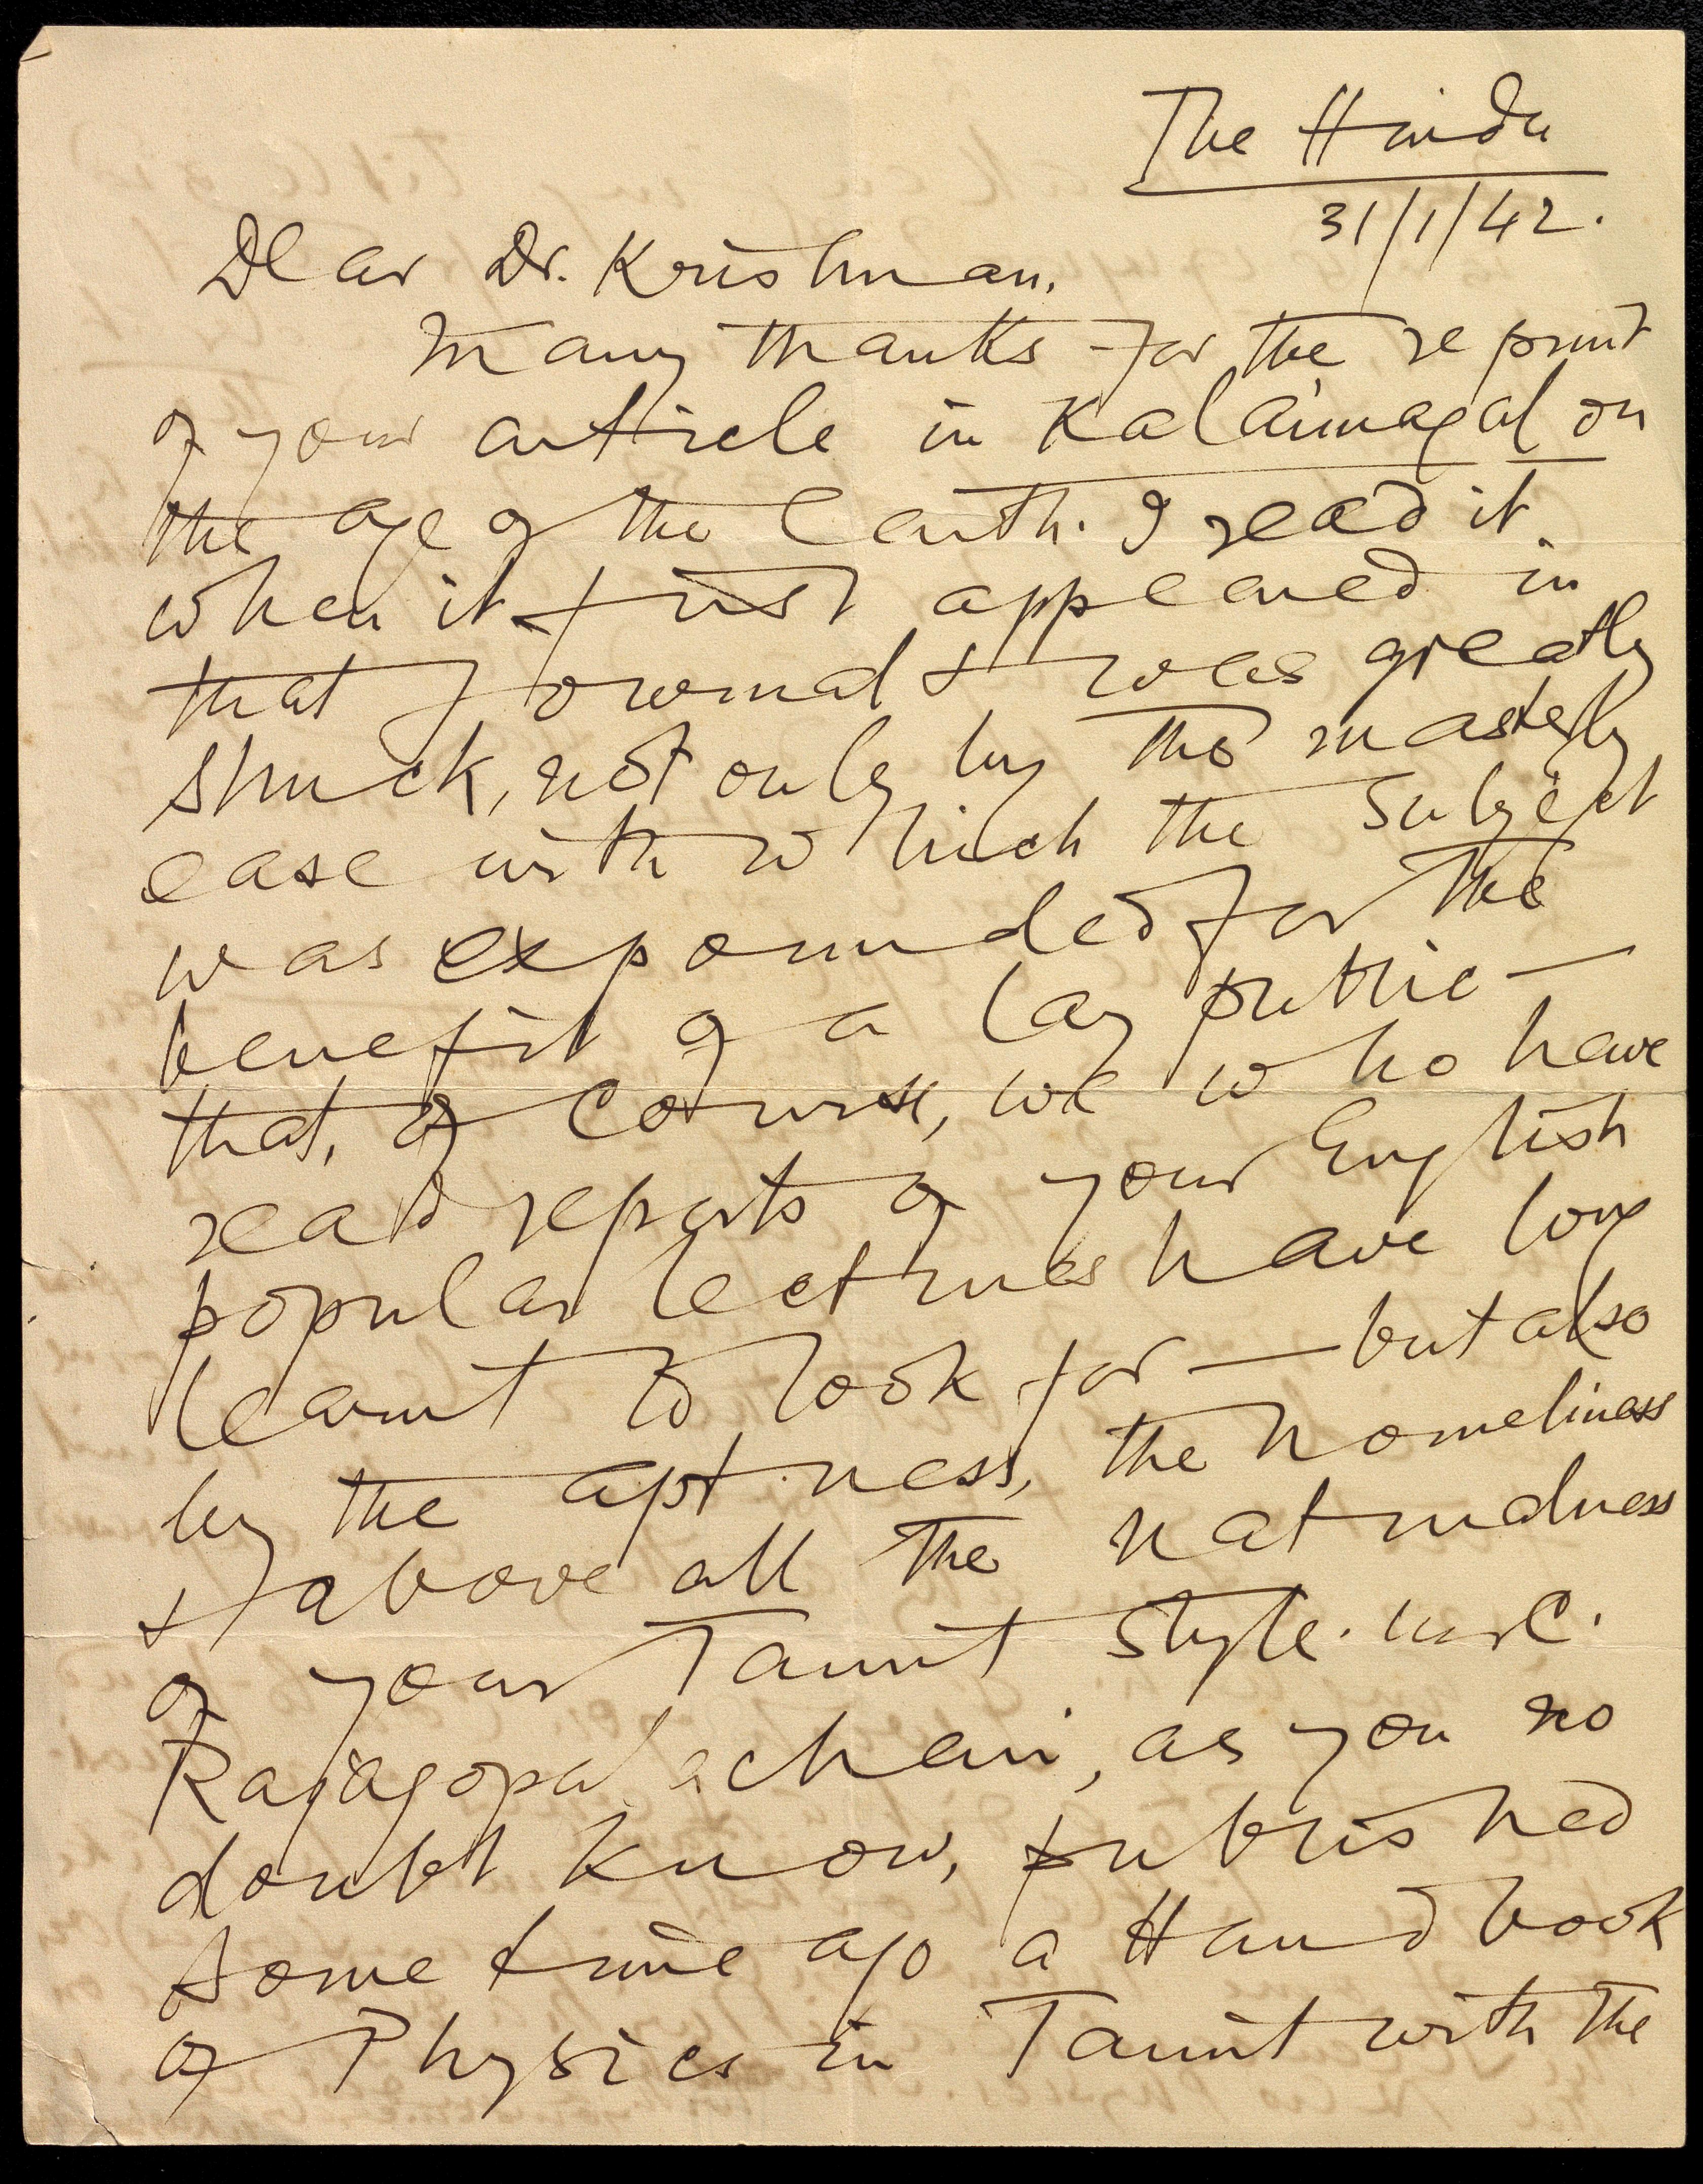 The Hindu
31/1/42.
Dear Dr. Krishnan.
Many thanks for the reprint
of your article in Kalaimagal on
the age of the Earth. I read it
when it first appeared in
that journal & was greatly
struck, not only by the masterly
ease with which the subject
was expounded for the
benefit of a lay public —
that, of course, we who have
read reports of your English
popular lectures have long
learnt to look for — but also
by the aptness, the homeliness
& above all the naturalness
of your Tamil style. Mr C.
Rajagopalachari, as you no
doubt know, published
some time ago a Handbook
of Physics in Tamil with the